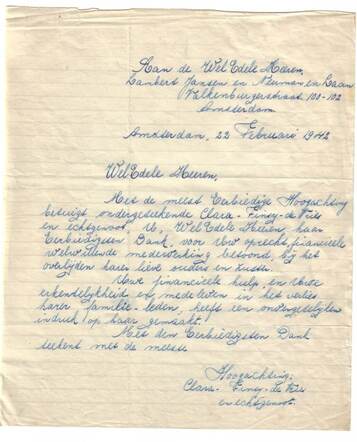 Aan de WelEdele Heeren,
Lambert Jansen en Neuman en Laan
Valkenburgerstraat 100-102
Amsterdam
Amsterdam, 22 Februari 1942
WelEdele Heeren,
Met de meest Eerbiedige Hoogachting
betuigt ondergetekende Clara-Finsy-de Vries
en echtgenoot, U, WelEdele Heeren, haar
Eerbiedigsten Dank, voor Uw oprechte, financieele
welwillende medewerking betoond, bij het
overlijden harer lieve ouders en zusje.
Uwe financieele hulp, en Uwe
erkendelijkheid of medeleven in het verlies
harer familie-leden, heeft een onvergetelijken
indruk op haar gemaakt.
Met den Eerbiedigsten Dank
teekent met de meeste
Hoogachting.
Clara-Finsy-de Vries
en echtgenoot.